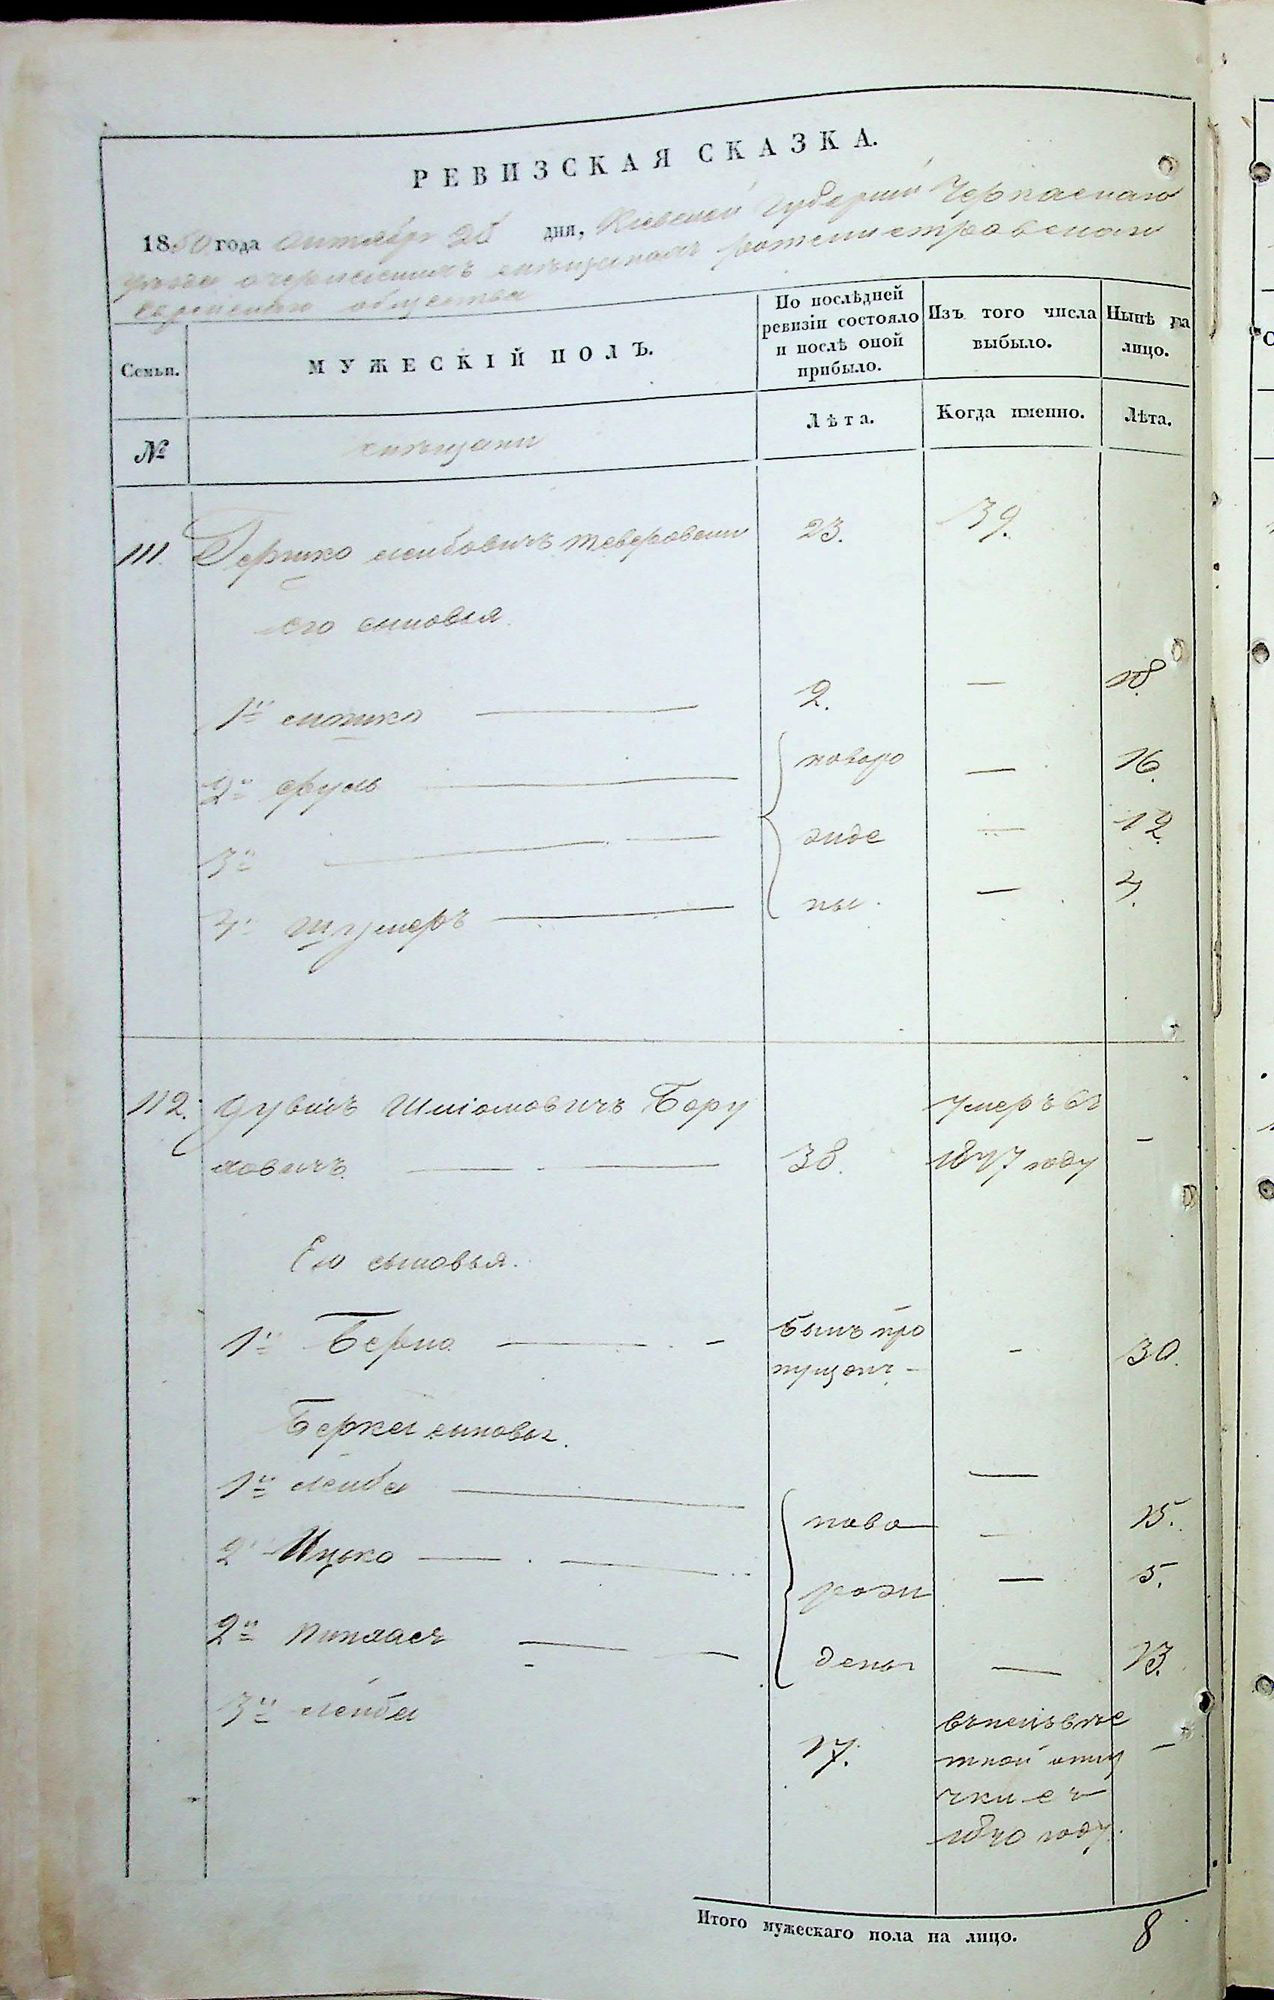 РЕВИЗСКАЯ СКАЗКА.
1850 года Октября 25 дня, Киевской Губернии Черкаскаго
уезда о еврейского общества
Семьи.
МУЖЕСКІЙ ПОЛЪ.
По послѣдней ревизіи состояло и послѣ оной прибыло.
Изъ того числа выбыло.
Нынѣ на лицо.
№
Лѣта.
Когда именно.
Лѣта.
111. Гершко Лейбовичъ Тверовски 23. 39.
его сыновья
1й Мошко 2. — 18.
2й Сруль новоро — 16.
3й жде — 12.
4й ны. — 4.
112. Дувидъ Шліомовичъ Бору Умеръ въ
ховичъ 38. 1847 году —
Его сыновья.
1й Берко былъ про
пущенъ - 30.
Берки сыновья.
1й Лейба ново — 15.
2й Ицько рожи — 5.
2й Пинхасъ дены — 13.
3й Лейба 17. въ неизвѣс —
тной отлу
чки съ
1840 году.
Итого мужескаго пола на лицо. 8